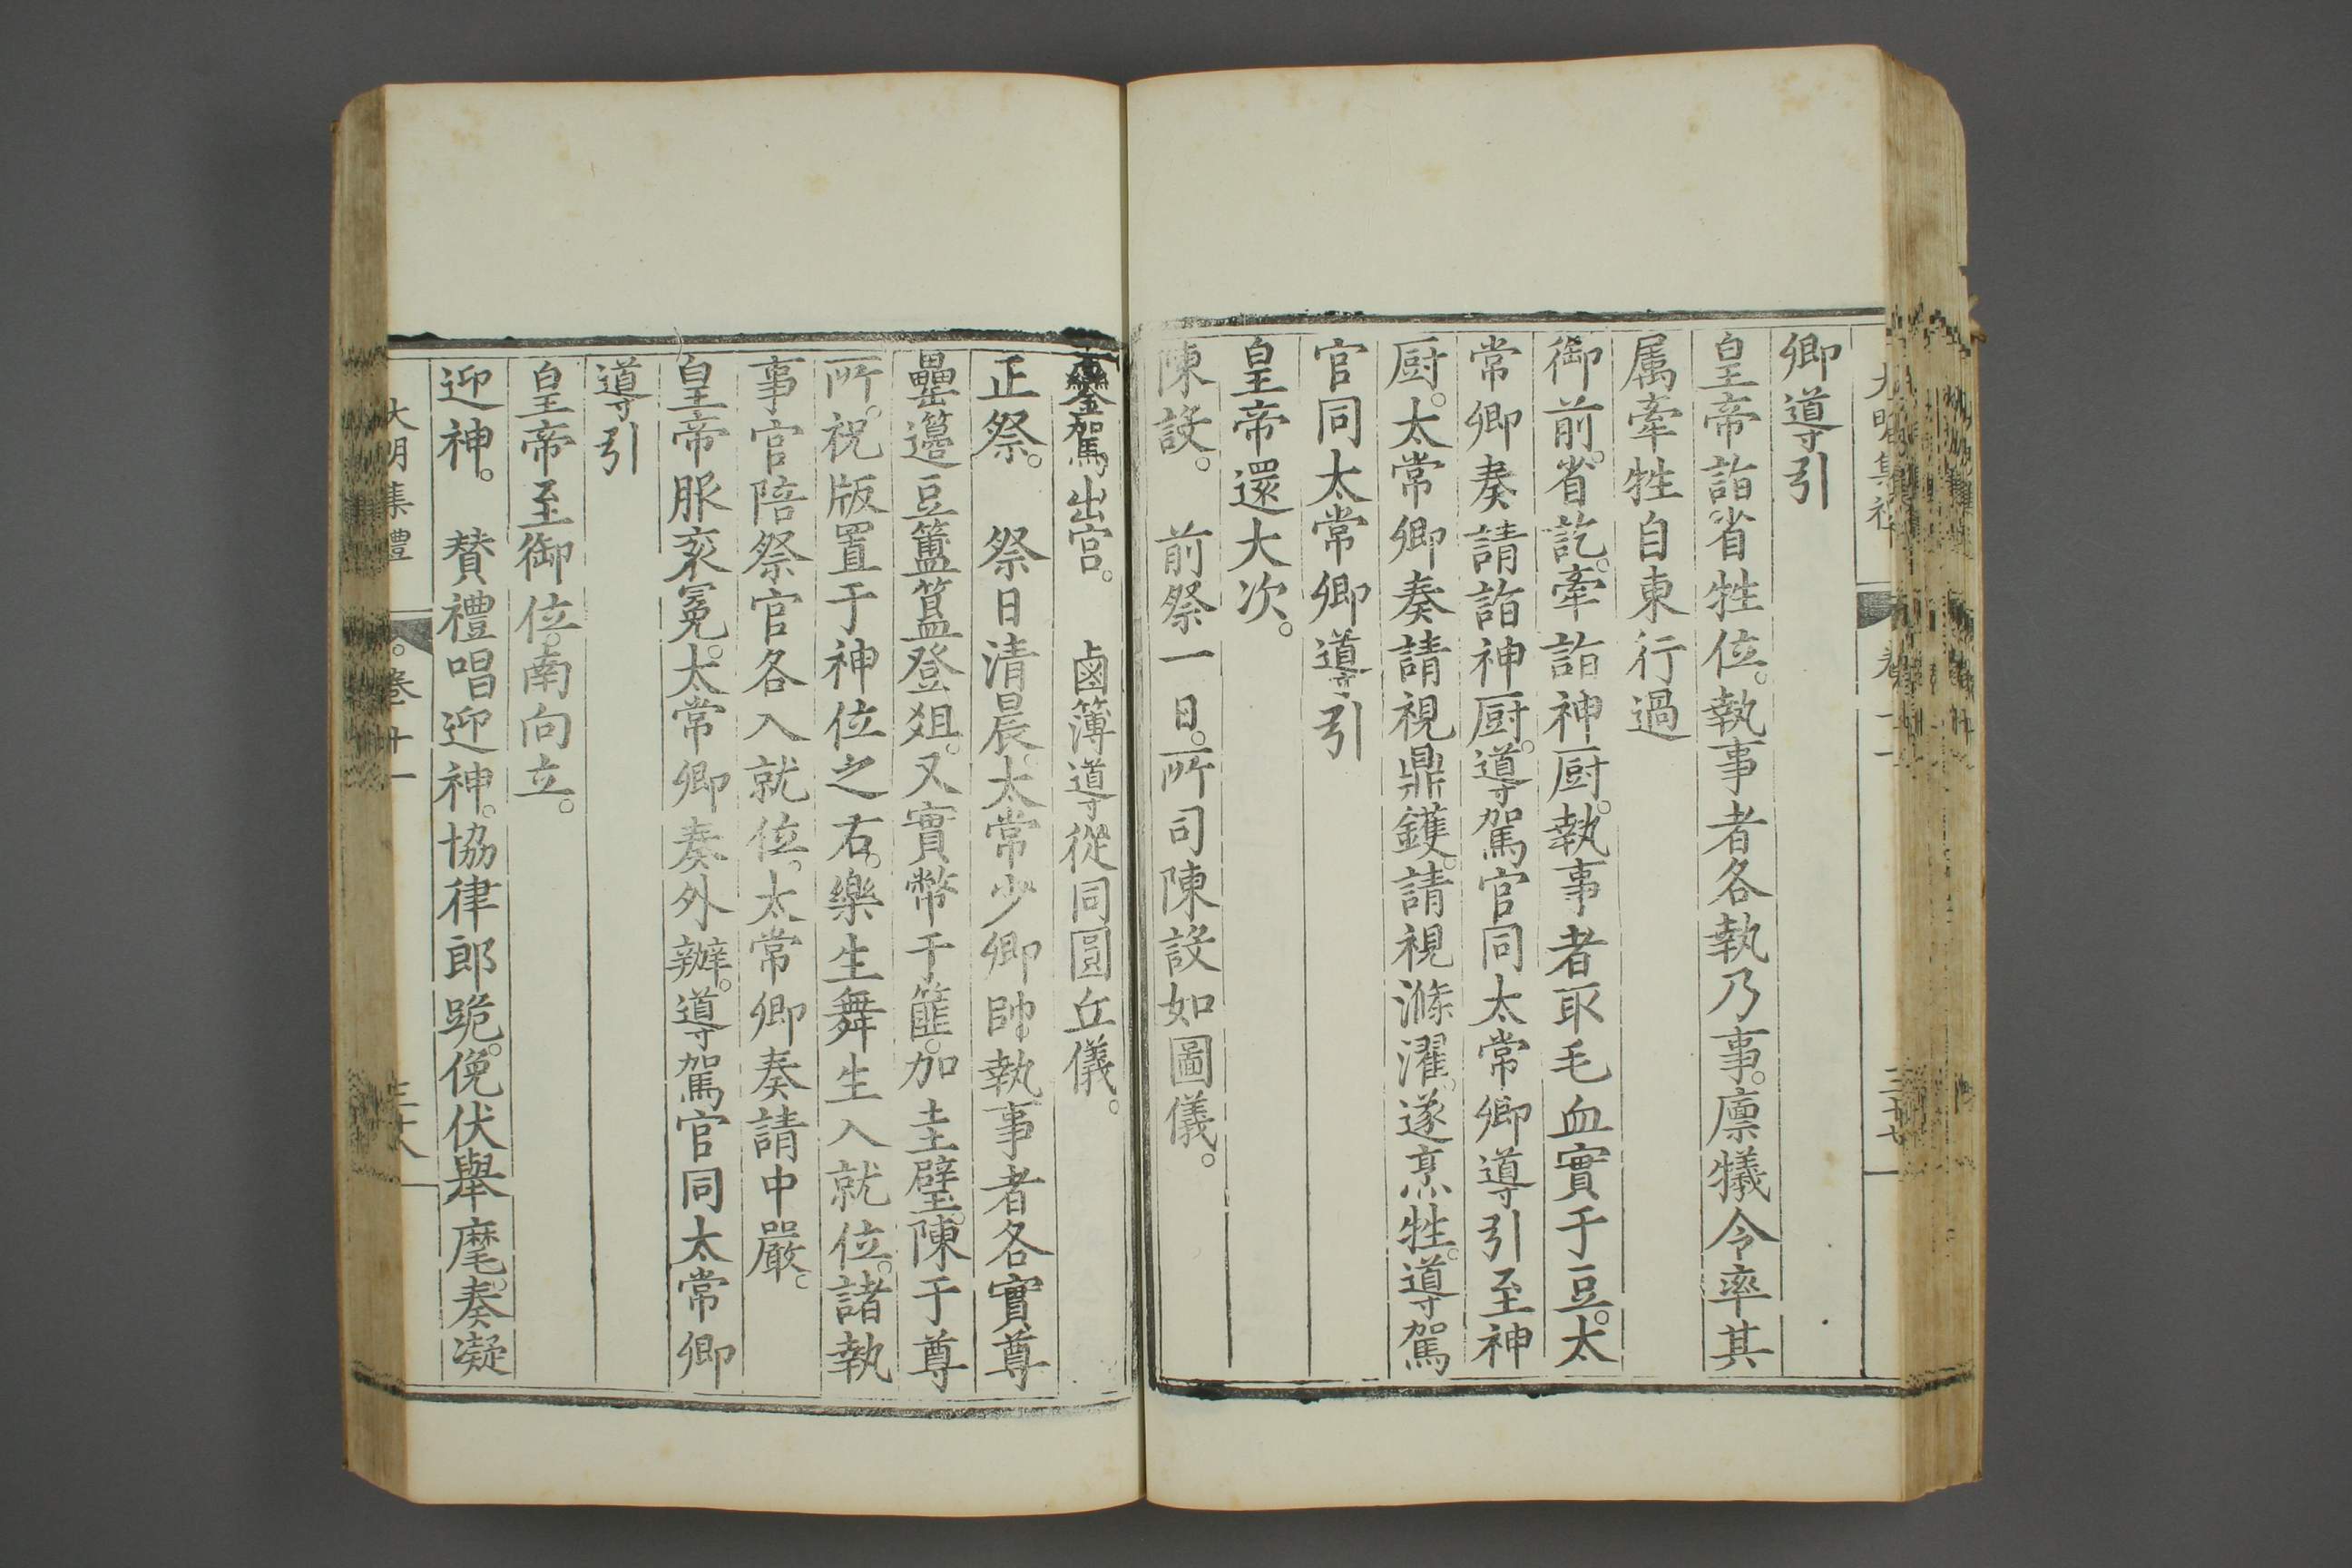 卿導引
皇帝詣省牲位。執事者各執乃事。廩犧令率其
属牽牲自東行過
御前。省訖。牽詣神厨。執事者取毛血實于豆。太
常卿奏請詣神厨。導駕官同太常卿導引至神
厨。太常卿奏請視鼎鑊。請視滌濯。遂烹牲。導駕
官同太常卿導引
皇帝還大次。
陳設。 前祭一日。所司陳設如圖儀。
鑾駕出宮。 鹵簿導從同圓丘儀。
正祭。 祭日清晨。太常少卿帥執事者各實尊
罍籩豆簠簋登俎。又實幣于篚。加圭璧。陳于尊
所。祝版置于神位之右。樂生舞生入就位。諸執
事官陪祭官各入就位。太常卿奏請中嚴。
皇帝服衮冕。太常卿奏外辦。導駕官同太常卿
導引
皇帝至御位。南向立。
迎神。 賛禮唱迎神。協律郎跪。俛伏舉麾。奏凝
大明集禮 卷十一